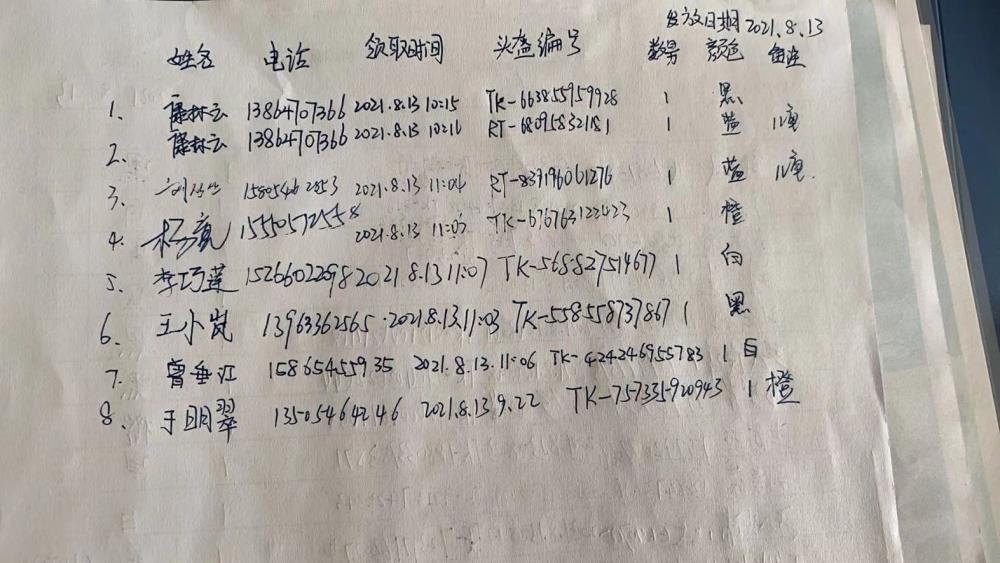 发放日期 2021.8.13
姓名 电话 领取时间 头盔编号 数量 颜色 备注
1. 林云 13864707366 2021.8.13 10:15 TK-663855959928 1 黑
2. 林云 13864707366 2021.8.13 10:16 RT-680958321181 1 蓝
3. 刘 15805462853 2021.8.13 11:04 RT-837196061276 1 蓝
4. 杨 15550572558 2021.8.13 11:05 TK-676763122423 1 橙
5. 李巧莲 15266022298 2021.8.13 11:07 TK-568827514677 1 白
6. 王小岚 13963362565 2021.8.13.11:03 TK-558558737867 1 黑
7. 曾垂江 15865455935 2021.8.13.11:06 TK-424246955783 1 白
8. 于明翠 13505464246 2021.8.13.9.22 TK-757335920943 1 橙